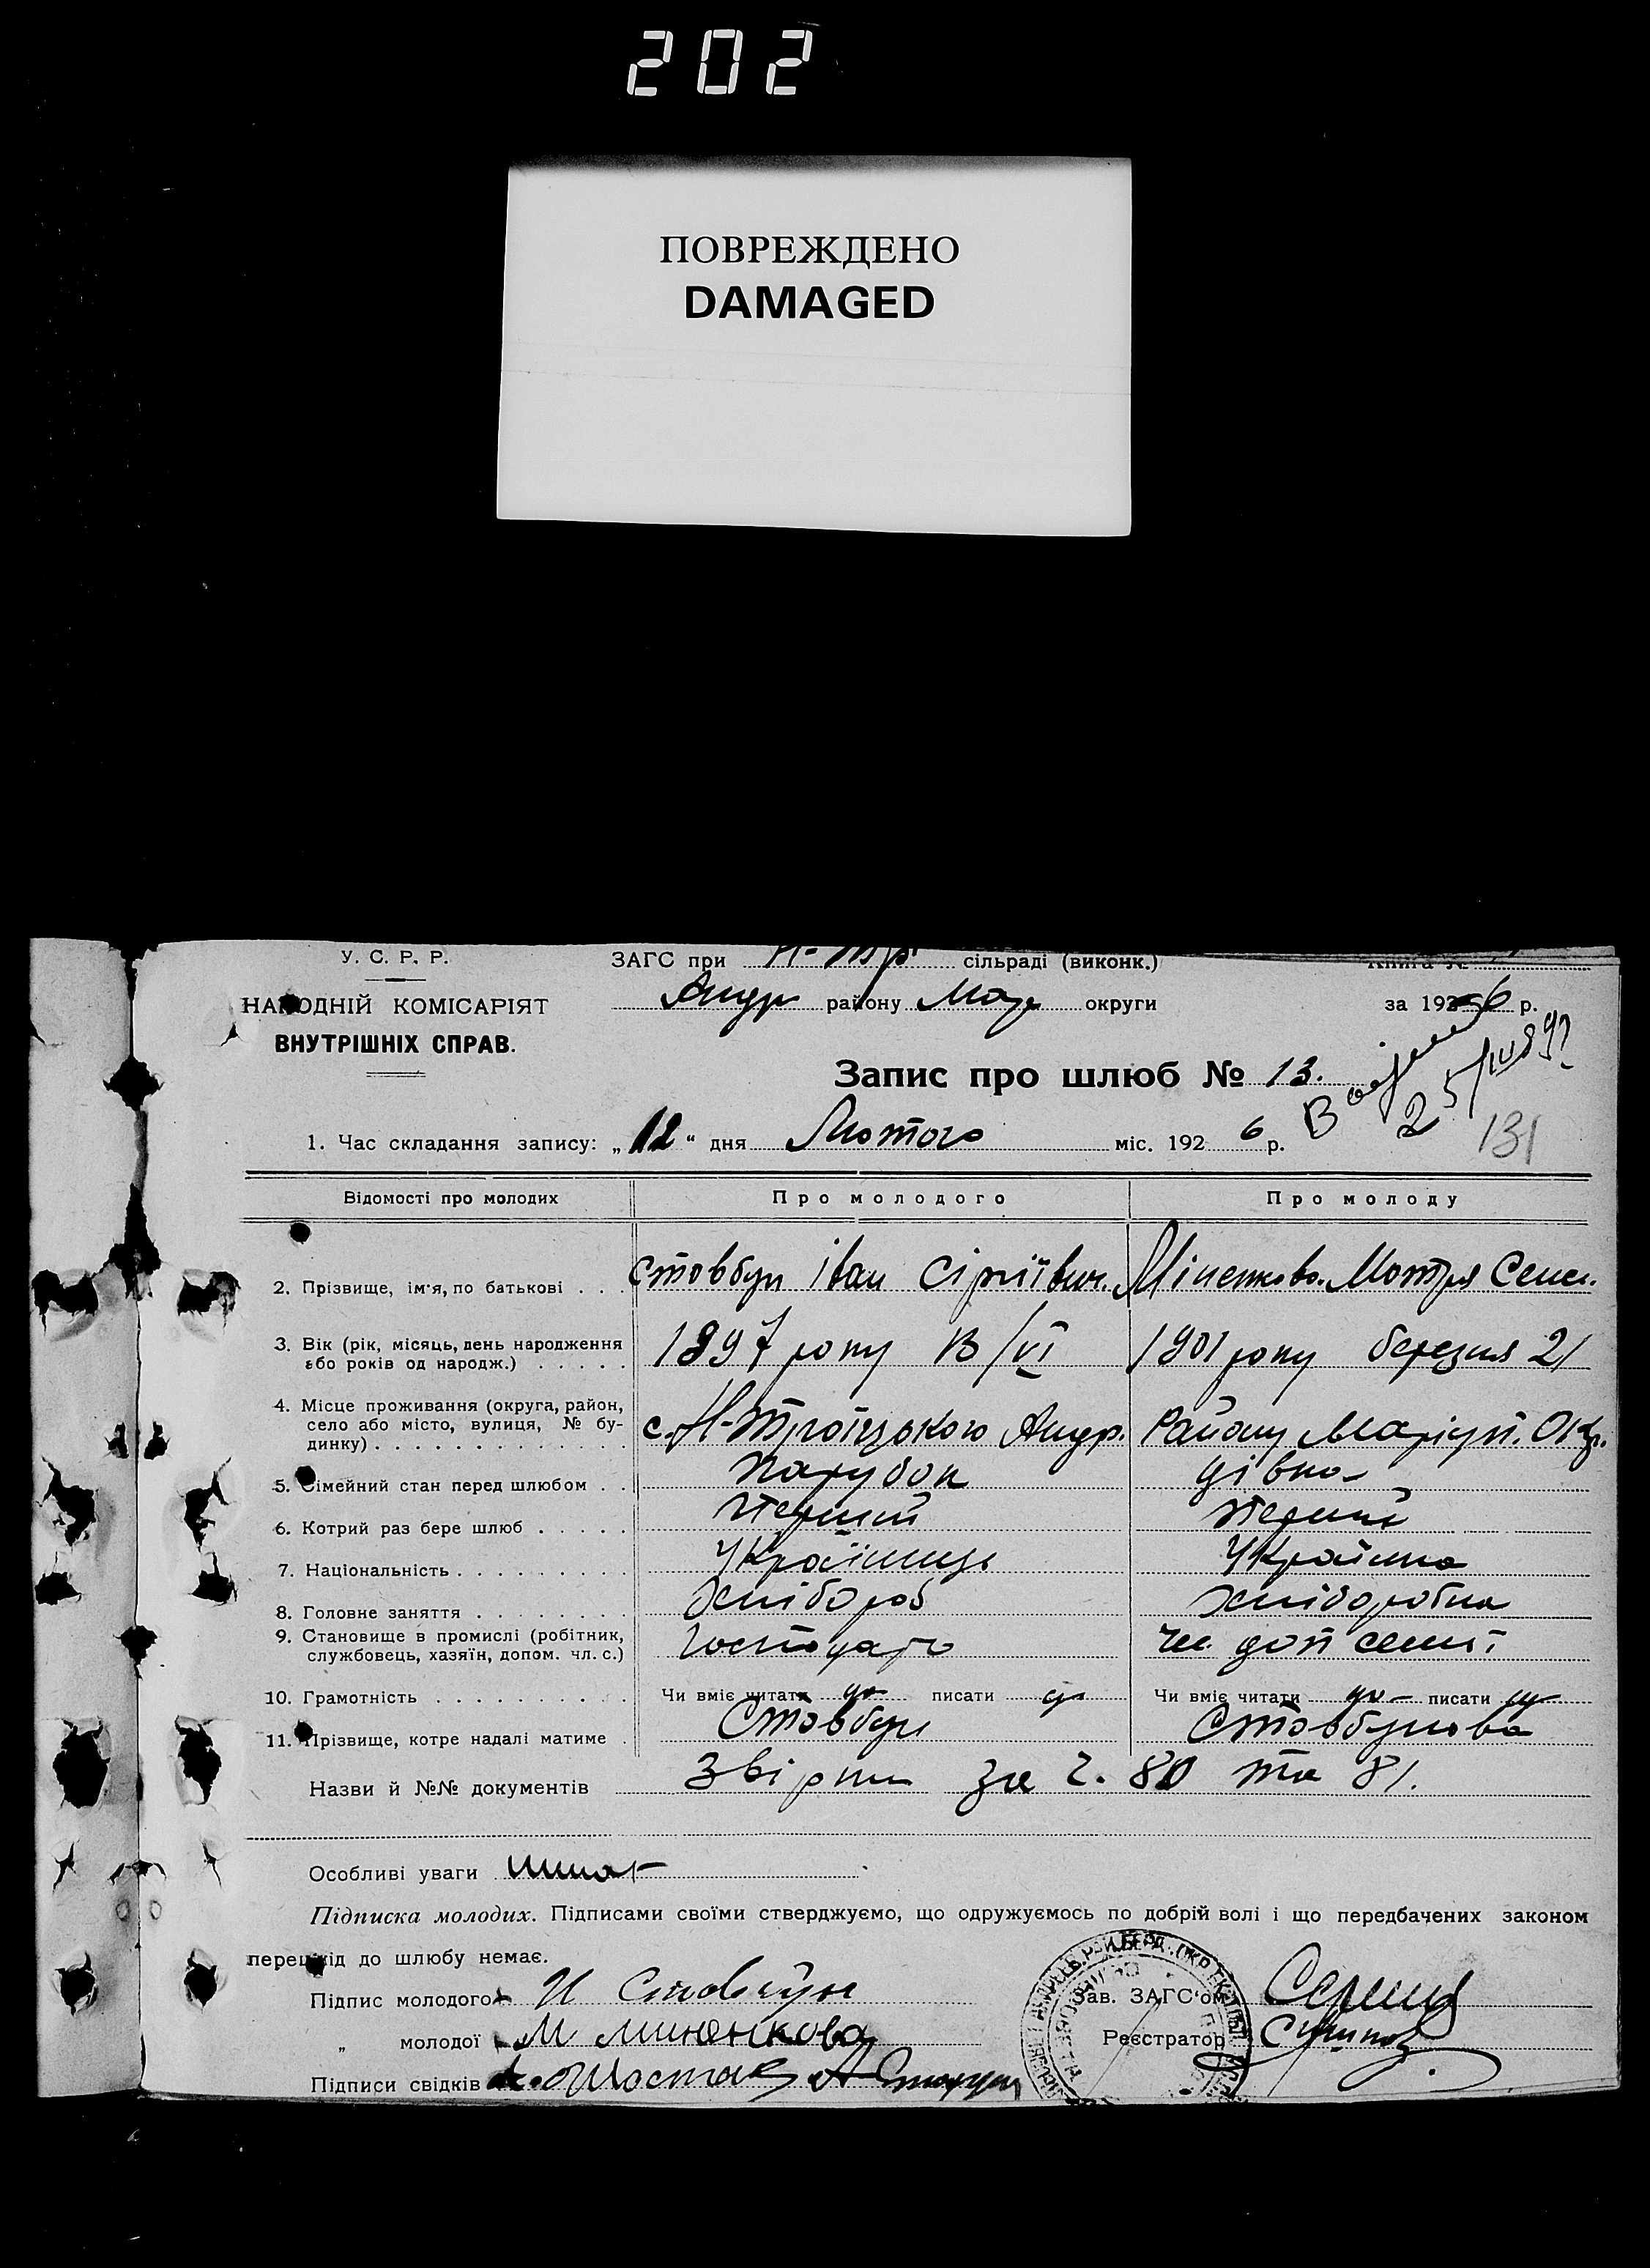 202
ПОВРЕЖДЕНО
DAMAGED
У. С. Р. Р.
ЗАГС при Н-Тр. сільраді (виконк.) Книга №
НАРОДНІЙ КОМІСАРІЯТ
Андр району Мар округи за 1926 р.
ВНУТРІШНІХ СПРАВ.
Запис про шлюб № 13.
1. Час складання запису: „12“ дня Лютого міс. 1926 р.
131
Відомості про молодих Про молодого Про молоду
2. Прізвище, ім'я, по батькові . . . Стовбун Іван Сіргіївич. Міненкова Мотря Семен.
3. Вік (рік, місяць, день народження 1897 року 13/VI 1901 року березня 21
або років од народж.) . . . . .
4. Місце проживання (округа, район,
село або місто, вулиця, № бу- с. Н-Троїцького Андр. Району Маріуп. Окр.
динку) . . . . . . . . . . . . . .
5. Сімейний стан перед шлюбом . . Парубок дівка
6. Котрий раз бере шлюб . . . . . Перший Перший
7. Національність . . . . . . . . . Українець Українка
8. Головне заняття . . . . . . . . Хлібороб хліборобка
9. Становище в промислі (робітник, Господарь чл. доп семї
службовець, хазяїн, допом. чл. с.)
10. Грамотність . . . . . . . . . . Чи вміє читати да писати да Чи вміє читати да писати да
11. Прізвище, котре надалі матиме . Стовбун Стовбунова
Назви й №№ документів Звірки за ч. 80 та 81.
Особливі уваги
Підписка молодих. Підписами своїми стверджуємо, що одружуємось по добрій волі і що передбачених законом
перешкід до шлюбу немає.
Підпис молодого И Стовбун Зав. ЗАГС'ом
„ молодої М Миненкова Реєстратор
Підписи свідків Шостак